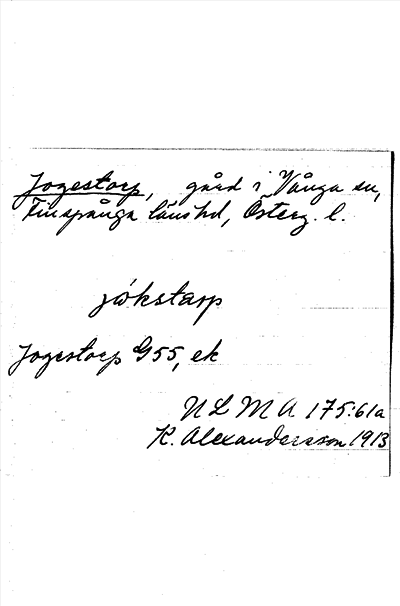 Jogestorp, gård i Vånga sn,
Finspånga länshd, Österg. l.
jökstarp
Jogestorp G 55, ek
ULMA 175:61a
K. Alexandersson 1913